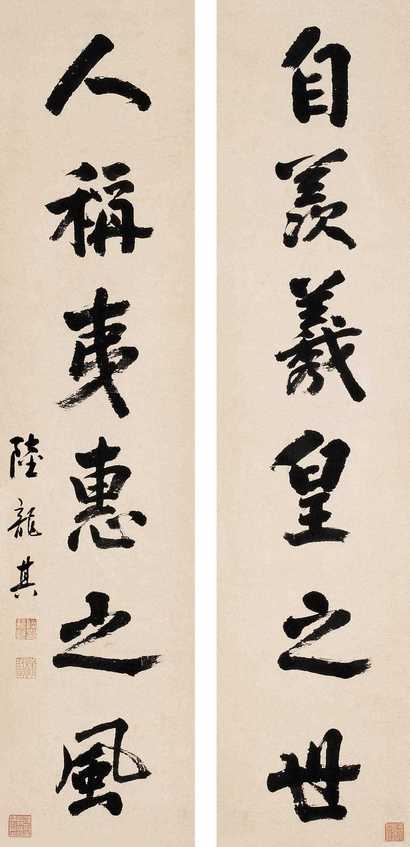 自羨羲皇之世
人稱夷惠之風
陸隴其